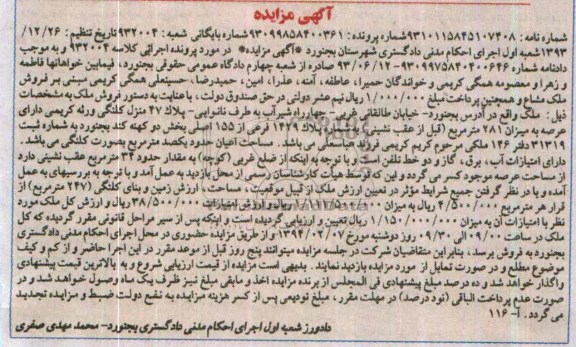 آگهی مزایده
شماره نامه: ۹۳۱۰۱۱۵۸۴۵۱۰۷۴۰۸ شماره پرونده: ۹۳۰۹۹۸۵۸۴۰۰۳۶۱ شماره بایگانی شعبه: ۹۳۲۰۰۴ تاریخ تنظیم: ۱۲/۲۶/
۱۳۹۳ شعبه اول اجرای احکام مدنی دادگستری شهرستان بجنورد *آگهی مزایده* در مورد پرونده اجرائی کلاسه ۹۳۲۰۰۴ و به موجب
دادنامه شماره ۹۳۰۹۹۷۵۸۴۰۴۰۰۶۴۶-۹۳/۰۶/۱۲ صادره از شعبه چهارم دادگاه عمومی حقوقی بجنورد، فیمابین خواهانها فاطمه
و زهرا و معصومه همگی کریمی و خواندگان حمیرا، عاطفه، آمنه، عذرا، امین، حمیدرضا، حسینعلی همگی کریمی مبنی بر فروش
ملک مشاع و همچنین پرداخت مبلغ ۱/۰۰۰/۰۰۰ ریال نیم عشر دولتی در حق صندوق دولت، با عنایت به دستور فروش ملک به مشخصات
ذیل: ملک واقع در آدرس بجنورد- خیابان طالقانی غربی- چهارراه شیرآب به طرف نانوایی- پلاک ۴۷ منزل کلنگی ورثه کریمی دارای
عرصه به میزان ۲۸۱ مترمربع (قبل از عقب نشینی پلاک ۱۴۲۹ فرعی از ۱۵۵ اصلی بخش دو کهنه کند بجنورد به شماره ثبت
۳۱۳۱۹ دفتر ۱۴۶ ملکی مرحوم کریم کریمی فرزند عباسعلی می باشد. مساحت اعیان حدود یکصد مترمربع بصورت کلنگی می باشد.
دارای امتیازات آب، برق، گاز و دو خط تلفن است و با توجه به اینکه از ضلع غربی (کوچه) به مقدار حدود ۳۴ مترمربع عقب نشینی دارد
از مساحت عرصه موجود کسر می گردد و این که توسط هیأت کارشناسان رسمی از محل بازدید به عمل آمد و با توجه به بررسیهای به عمل
آمده و با در نظر گرفتن جمیع شرایط مؤثر در تعیین ارزش ملک از قبیل موقعیت، مساحت، ارزش زمین و بنای کلنگی (۲۴۷ مترمربع) از
قرار هر مترمربع ۴/۵۰۰/۰۰۰ ریال به میزان ریال و ارزش امتیازات ۳۸/۵۰۰/۰۰۰ ریال و ارزش کل ملک مورد
نظر با امتیازات آن به میزان ۱/۱۵۰/۰۰۰/۰۰۰ ریال تعیین و ارزیابی گردیده است و اینکه پس از سیر مراحل قانونی مقرر گردید که کل
ملک در ساعت ۰۹/۰۰ الی ۰۹/۳۰ روز دوشنبه مورخ ۱۳۹۴/۰۲/۰۷ و از طریق مزایده حضوری در محل اجرای احکام مدنی دادگستری
بجنورد به فروش برسد، بنابراین متقاضیان شرکت در جلسه مزایده میتوانند پنج روز قبل از موعد مقرر در این اجرا حاضر و از کم و کیف
موضوع مطلع و در صورت تمایل از مورد مزایده بازدید نمایند. بدیهی است مزایده از قیمت ارزیابی شروع و به بالاترین قیمت پیشنهادی
واگذار خواهد شد و ده درصد مبلغ پیشنهادی فی المجلس از برنده مزایده اخذ و مابقی مبلغ نیز ظرف یک ماه وصول خواهد شد و در
صورت عدم پرداخت الباقی (نود درصد) در مهلت مقرر، مبلغ تودیعی پس از کسر هزینه مزایده به نفع دولت ضبط و مزایده تجدید
می گردد. آ-۱۱۶
دادورز شعبه اول اجرای احکام مدنی دادگستری بجنورد- محمد مهدی صفری